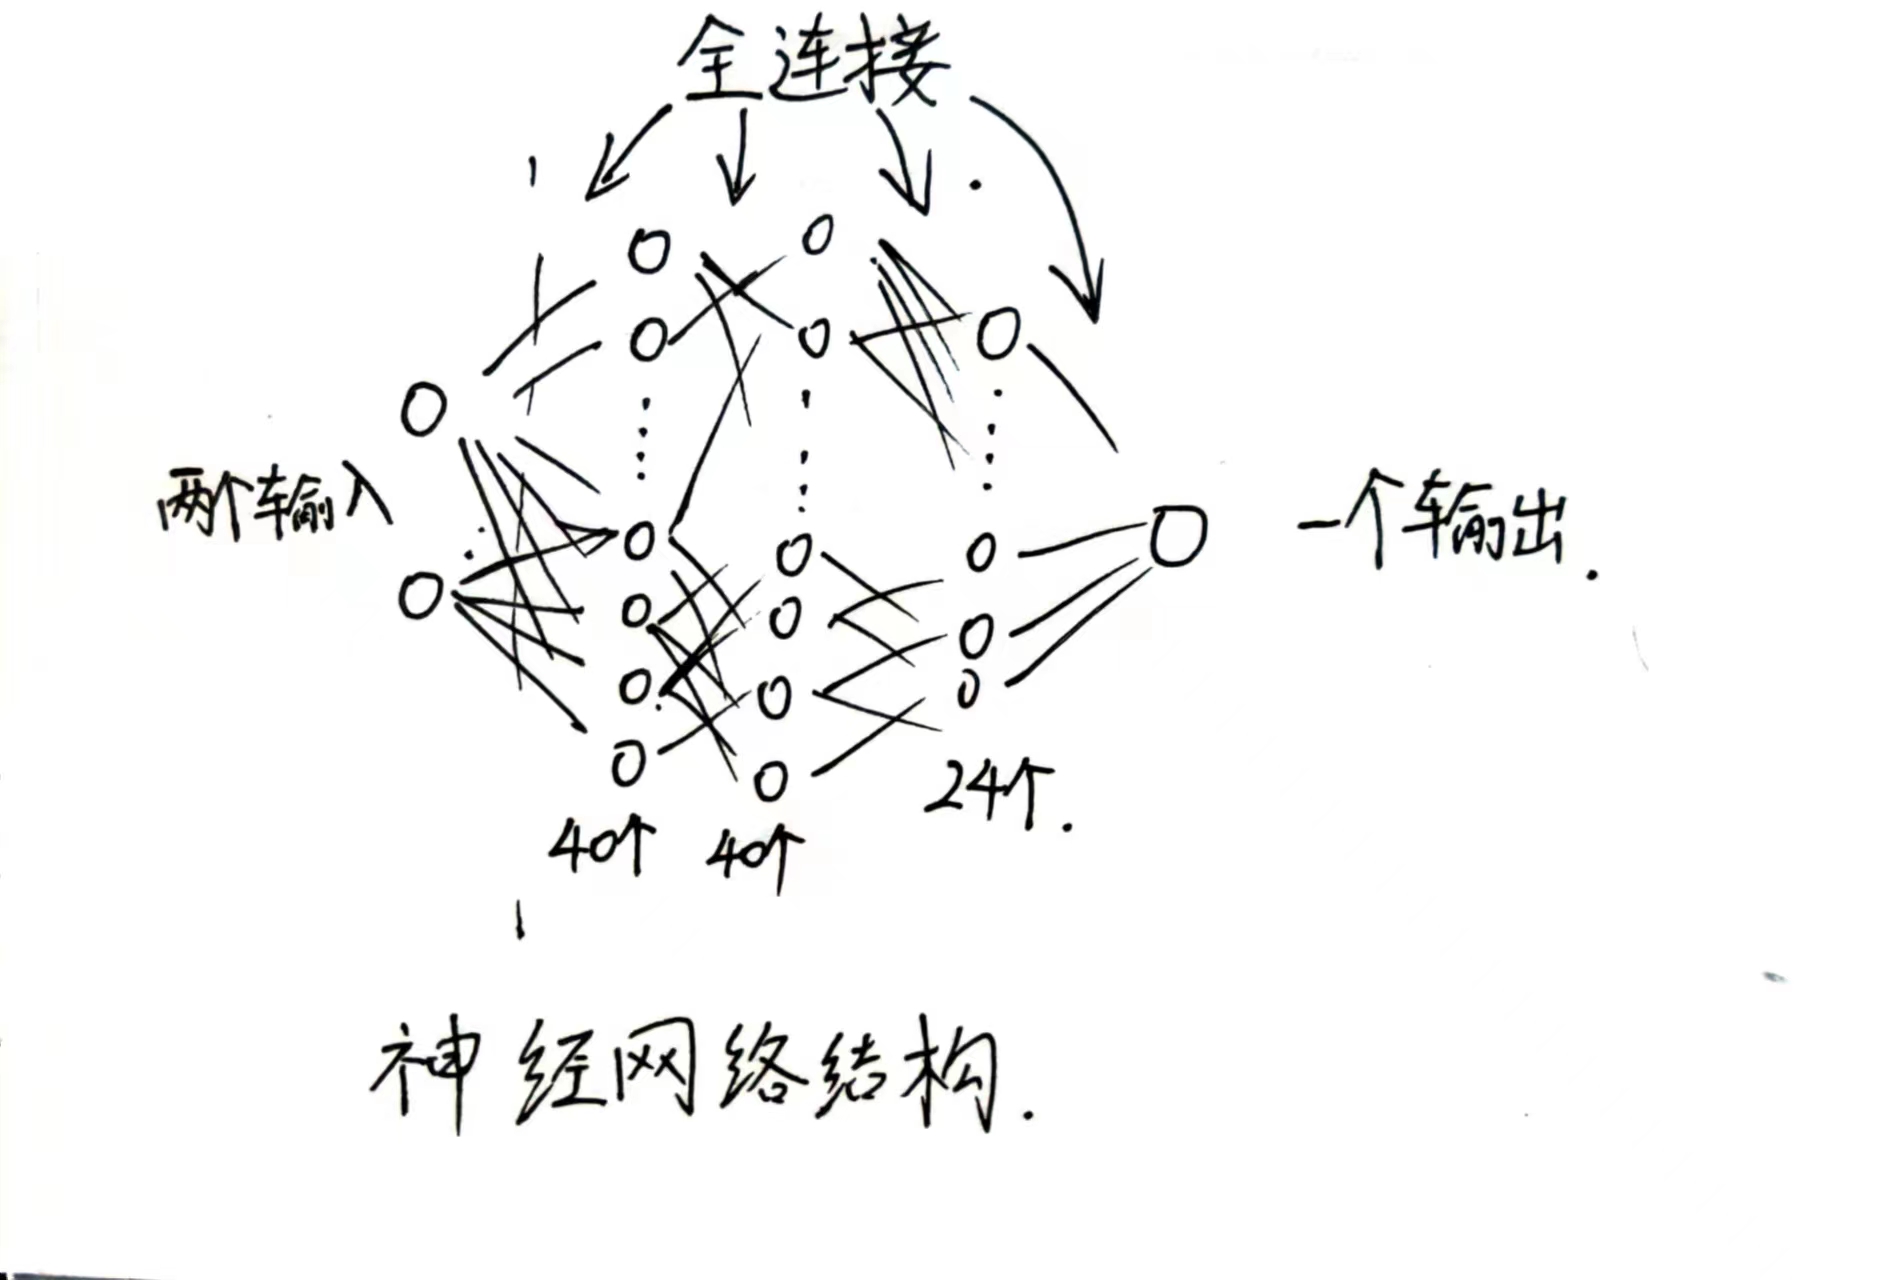 全连接
两个输入
一个输出.
24个.
40个 40个
神经网络结构.